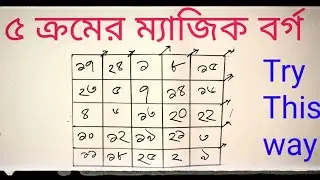 ৫ ক্রমের ম্যাজিক বর্গ
১৭ ২৪ ১ ৮ ১৫
২৩ ৫ ৭ ১৪ ১৬
৪ ৬ ১৩ ২০ ২২
১০ ১২ ১৯ ২১ ৩
১১ ১৮ ২৫ ২ ৯
Try
This
way